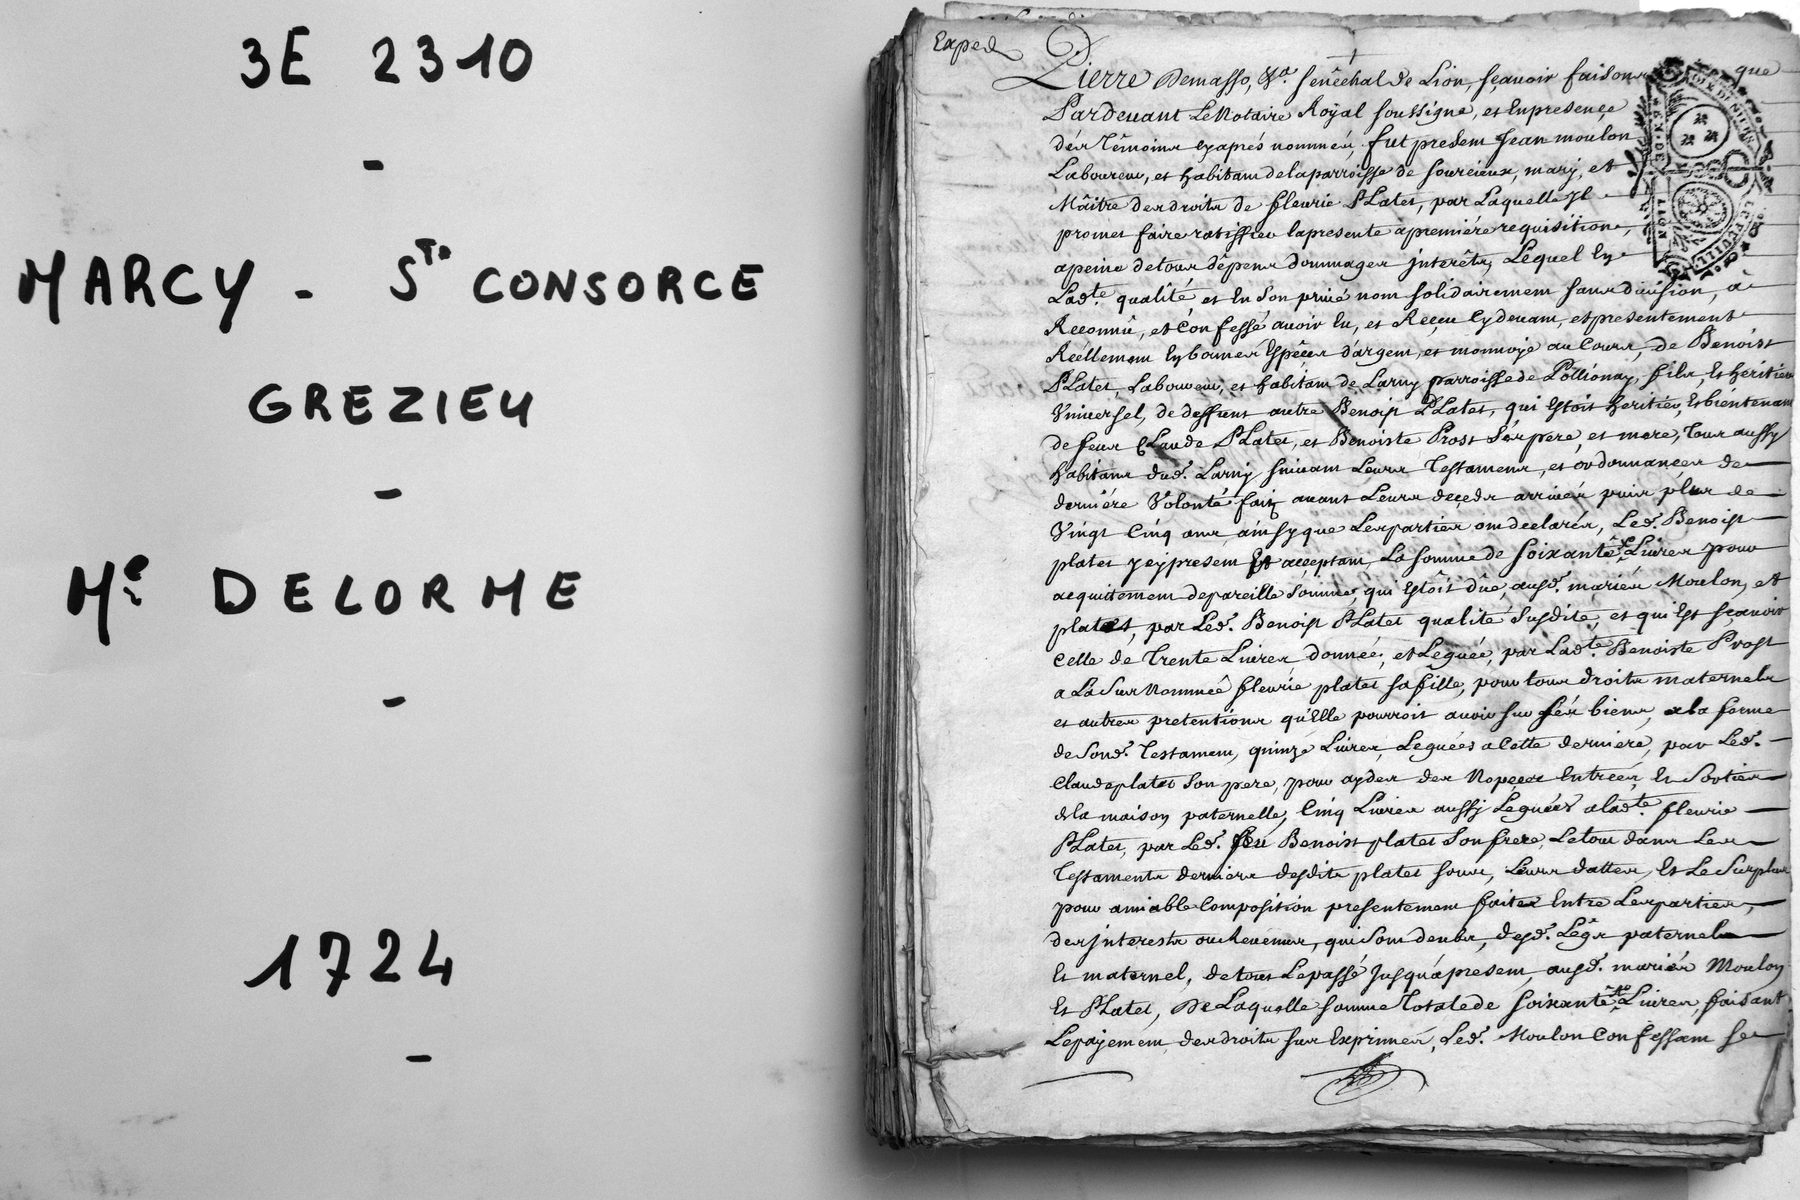 3E 2310
-
MARCY - Ste CONSORCE
GREZIEU
-
Me DELORME
-
1724
-
Exped
Pierre Demasso, &a. senêchal de Lion, sçavoir faisons que
Pardevant Le Notaire Royal soussigné, et En presençe
dés Têmoins cyaprés nommés, fut present Jean moulon
Laboureur, et habitant de la parroisse de sourcieux, mary, et
Maître des droits de fleurie PLatet, par Laquelle Jl
promet faire ratiffier la presente a premiére requisition,
a peine de tous dêpens dommages jnterêts, Lequel En
Ladte. qualité et En Son privé nom solidairement sans division, a
Reconnû, et Confessé avoir Eu, et Reçeu Cydevant, et presentement
Réellement En bonnes Espéces d'argent, et monnoye au Cours, de Benoist
PLatet, Laboureur, et habitant de Larny parroisse de Pollionay, fils, Et héritier
Vniversel, de deffunt autre Benoist PLatet, qui Estoit heritier, Et biéntenant
de feux CLaude PLatet, et Benoiste Prost Sés pere, et mere, Tous aussy
habitans dud. Larny suivant Leurs Testamens, et ordonnances de
derniére Volonté fait avant Leurs deçeds arrivés puis plus de
Vingt Cinq ans ainsy que Les parties ont declarés, Led. Benoist
platet jcy present Et acçeptant, La somme de soixante Livres pour
acquittement de pareille somme, qui Estoit dûe, ausd. mariés Moulon, et
platet, par Led. Benoist PLatet qualité Susdite, et qui Est sçavoir
Celle de Trente Livres, donnée, et Leguée, par Ladte. Benoiste Prost
a La Sus Nommeé fleurie platet sa fille, pour tous droits maternels
et autres pretentions qu'Elle pourroit avoir sur sés biens, a la forme
de Sond. Testament, quinze Livres, Leguées a Cette derniere, par Led.
Claude platet Son pere, pour ayder des Nopçes Entrées, Et Sorties
de la maison paternelle, Cinq Livres aussy Leguées a ladte. fleurie
PLatet, par Led. feu Benoist platet Son frere, Le tout dans Les
Testaments derniers desdits platet sous, Leurs dattes, Et Le Surplus
pour amiable Composition presentement faite Entre Les parties,
des jnterests ou Revenus, qui Sont deubs, desd. Légs paternel
Et maternel, de tout Le passé Jusqu'a present, ausd. mariés Moulon
Et PLatet, De Laquelle somme Totale de soixante Livres, faisant
Le pajement, des droits sus Exprimés, Led. Moulon Confessant se